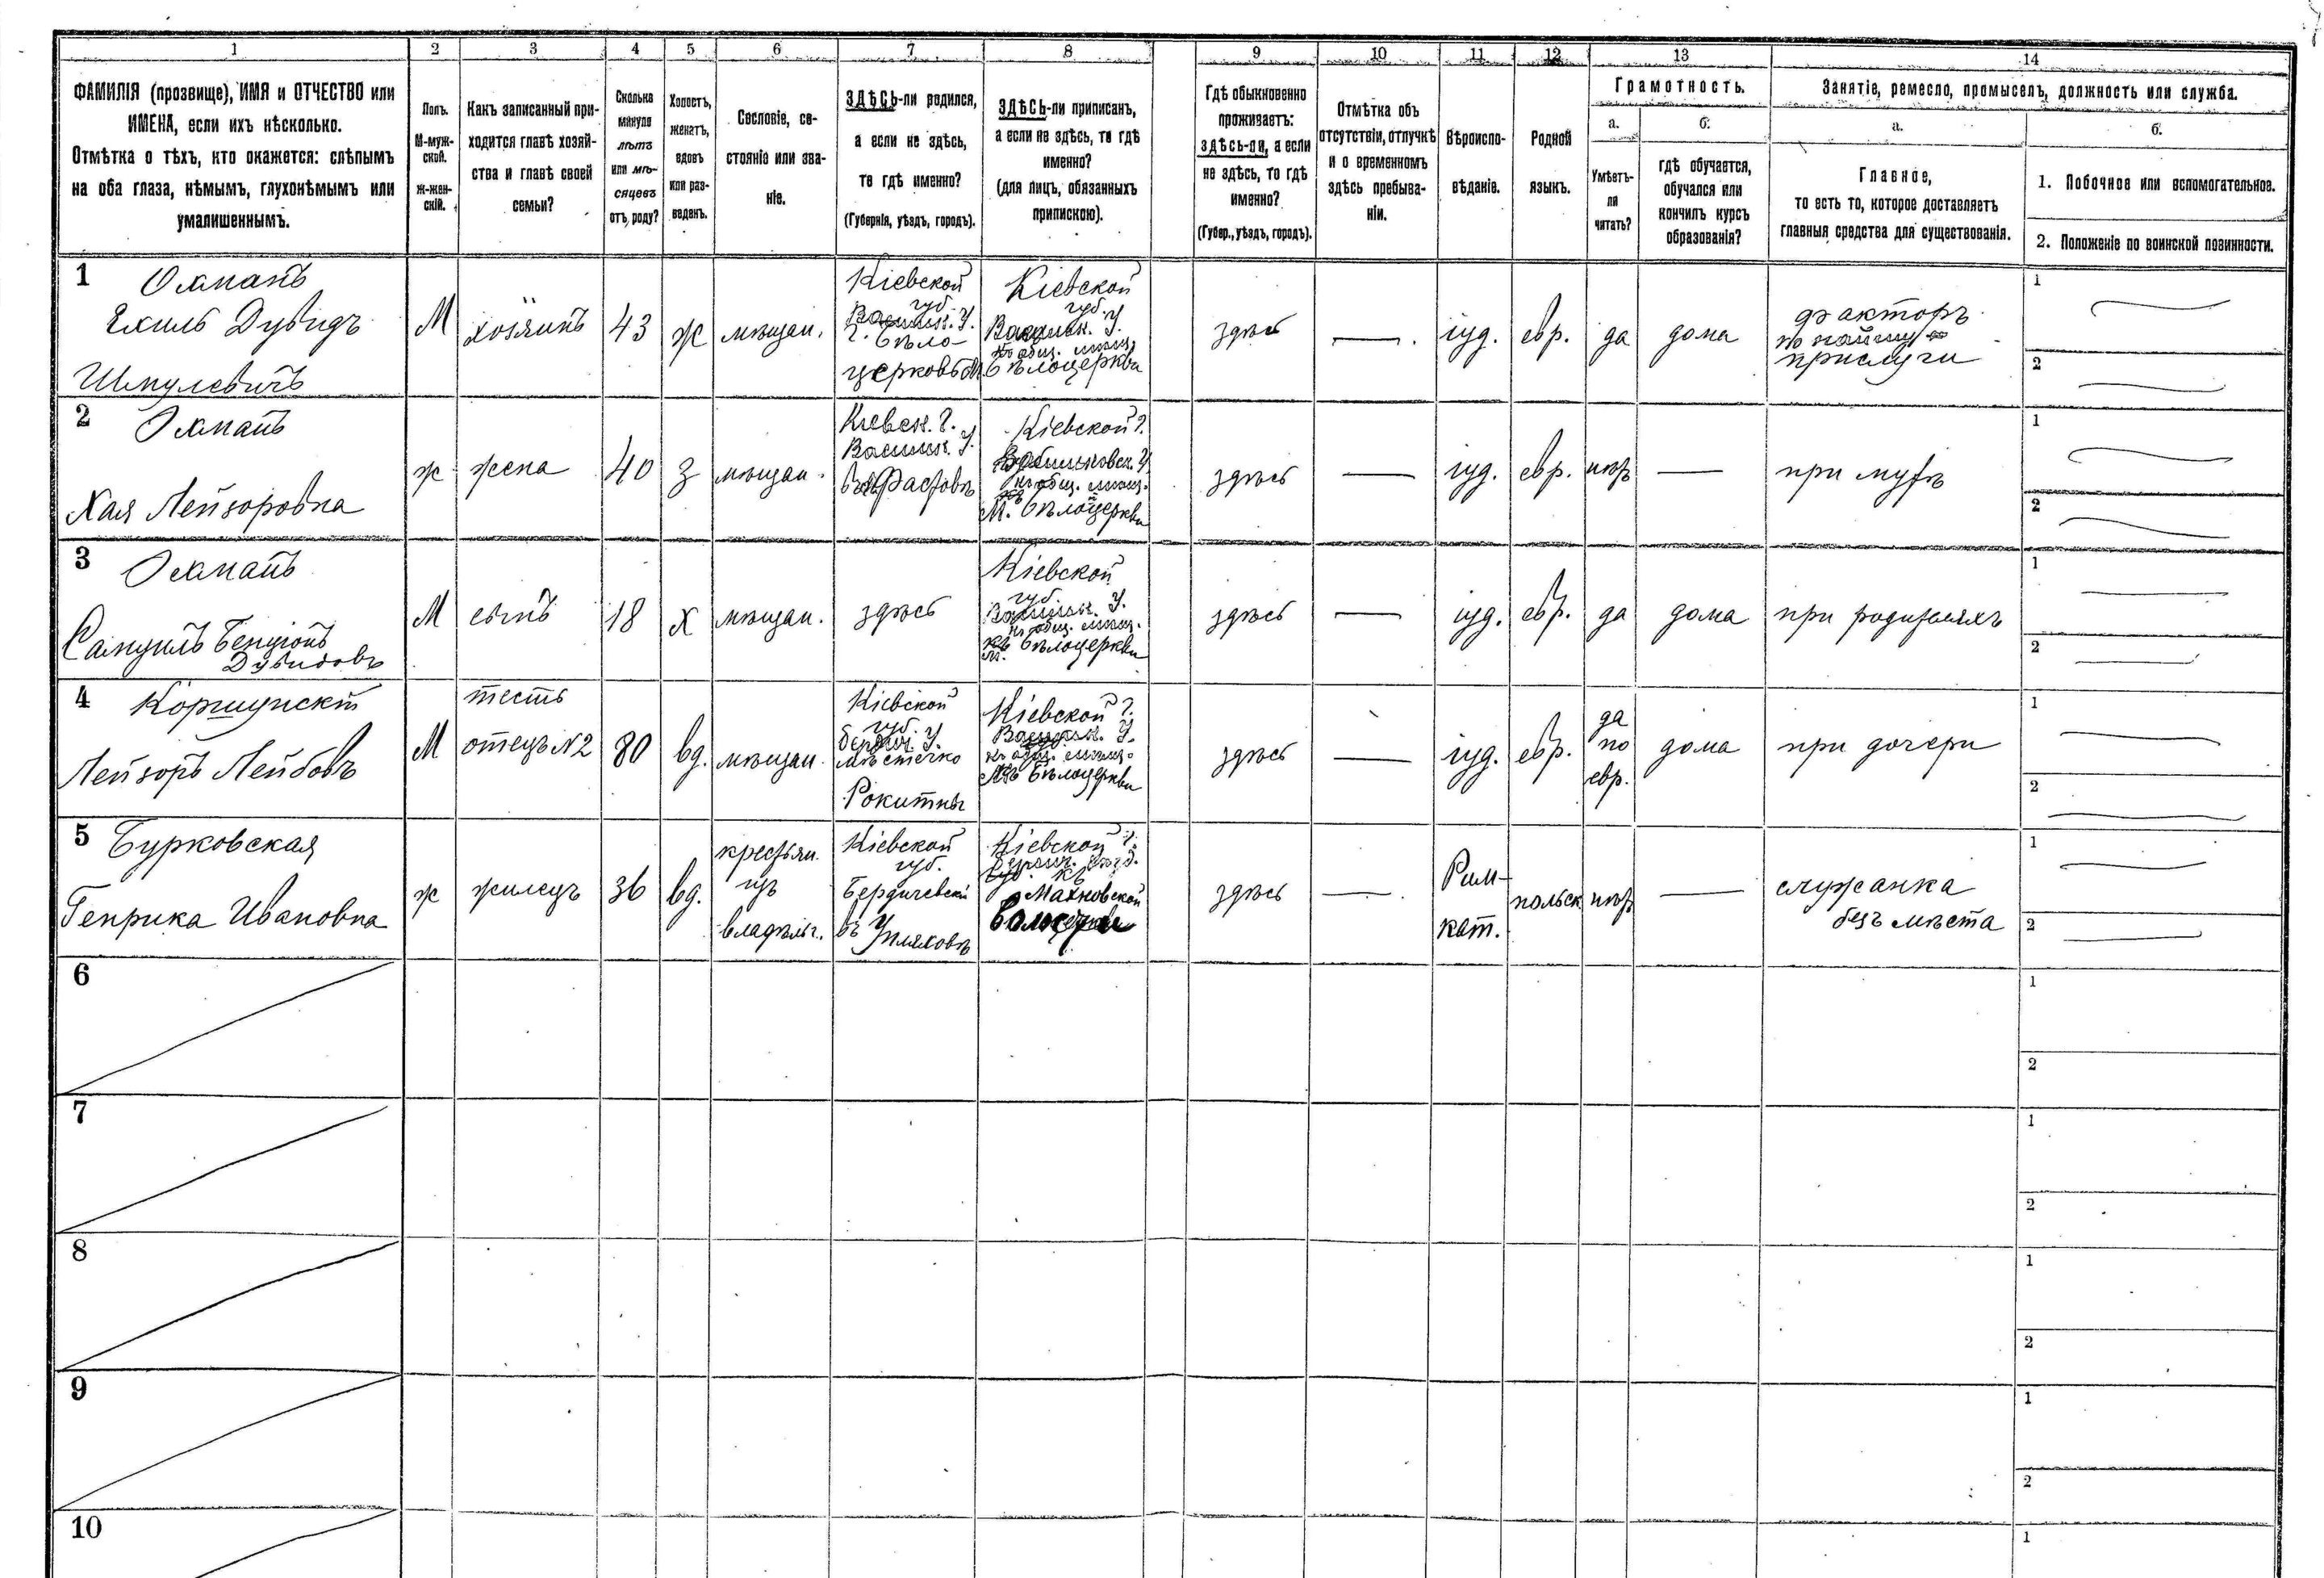 1 2 3 4 5 6 7 8 9 10 11 12 13 14
ФАМИЛІЯ (прозвище), ИМЯ и ОТЧЕСТВО или
ИМЕНА, если ихъ нѣсколько.
Отмѣтка о тѣхъ, кто окажется: слѣпымъ
на оба глаза, нѣмымъ, глухонѣмымъ или
умалишеннымъ.
Полъ.
М-муж-
ской.
Ж-жен-
скій.
Какъ записанный при-
ходится главѣ хозяй-
ства и главѣ своей
семьи?
Сколько
минуло
лѣтъ
или мѣ-
сяцевъ
отъ роду?
Холостъ,
женатъ,
вдовъ
или раз-
веденъ.
Сословіе, со-
стояніе или зва-
ніе.
ЗДѢСЬ-ли родился,
а если не здѣсь,
то гдѣ именно?
(Губернія, уѣздъ, городъ).
ЗДѢСЬ-ли приписанъ,
а если не здѣсь, то гдѣ
именно?
(для лицъ, обязанныхъ
припискою).
Гдѣ обыкновенно
проживаетъ:
здѣсь-ли, а если
не здѣсь, то гдѣ
именно?
(Губер., уѣздъ, городъ).
Отмѣтка объ
отсутствіи, отлучкѣ
и о временномъ
здѣсь пребыва-
ніи.
Вѣроиспо-
вѣданіе.
Родной
языкъ.
Грамотность.
а.
Умѣетъ-
ли
читать?
б.
гдѣ обучается,
обучался или
кончилъ курсъ
образованія?
Занятіе, ремесло, промыселъ, должность или служба.
а.
Главное,
то есть то, которое доставляетъ
главныя средства для существованія.
б.
1. Побочное или вспомогательное.
2. Положеніе по воинской повинности.
1 Охманъ
Ехиль Дувидъ
Шмулевичъ
М
хозяинъ
43
ж
мѣщан.
Кіевской
губ.
Васильк. У.
Бѣло-
церковь
Кіевской
губ.
Васильк. У.
къ общ. мѣщ.
Бѣлоцеркви
здѣсь
іуд.
евр.
да
дома
факторъ
по найму
прислуги
1
2
2 Охманъ
Хая Лейзоровна
ж
жена
40
З
мѣщан.
Кіевск. г.
Васильк. У.
Фастовъ
Кіевской г.
къ общ. мѣщ.
м. Бѣлоцеркви
здѣсь
іуд.
евр.
нѣтъ
при мужѣ
1
2
3 Охманъ
Самуилъ Бенціонъ
Дувидовъ
М
сынъ
18
х
мѣщан.
здѣсь
Кіевской
губ.
Васильк. У.
къ общ. мѣщ.
м. Бѣлоцеркви
здѣсь
іуд.
евр.
да
дома
при родителяхъ
1
2
4 Коршунскій
Лейзоръ Лейбовъ
М
тесть
отецъ N2
80
вд.
мѣщан.
Кіевской
губ.
Бердич. У.
мѣстечко
Рокитны
Кіевской г.
Васильк. У.
къ общ. мѣщ.
Бѣлоцеркви
здѣсь
іуд.
евр.
да
по
евр.
дома
при дочери
1
2
5 Бурковская
Генрика Ивановна
ж
жилецъ
36
вд.
крестьян.
изъ
владѣльч.
Кіевской
губ.
Бердичевскій
Кіевской г.
къ
Махновской
волости
здѣсь
Рим-
кат.
польск.
нѣтъ
служанка
безъ мѣста
1
2
6
1
2
7
1
2
8
1
2
9
1
2
10
1